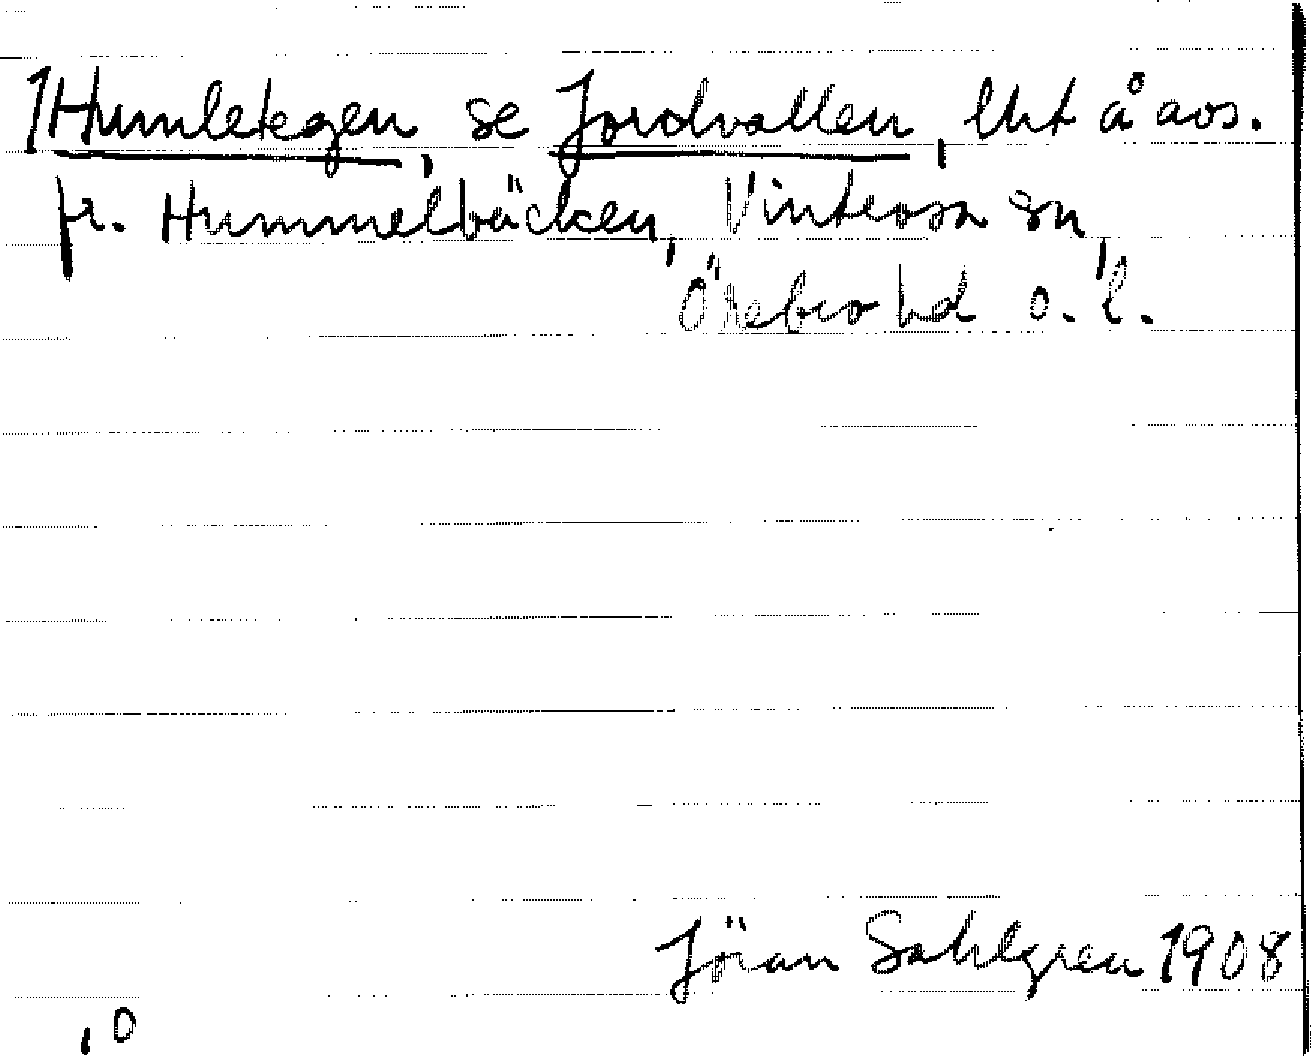 1Humletegen, se Jordvallen, lht å avs.
fr. Hummelbäcken, Vintrosa sn,
Örebro hd o. l.
Jöran Sahlgren 1908